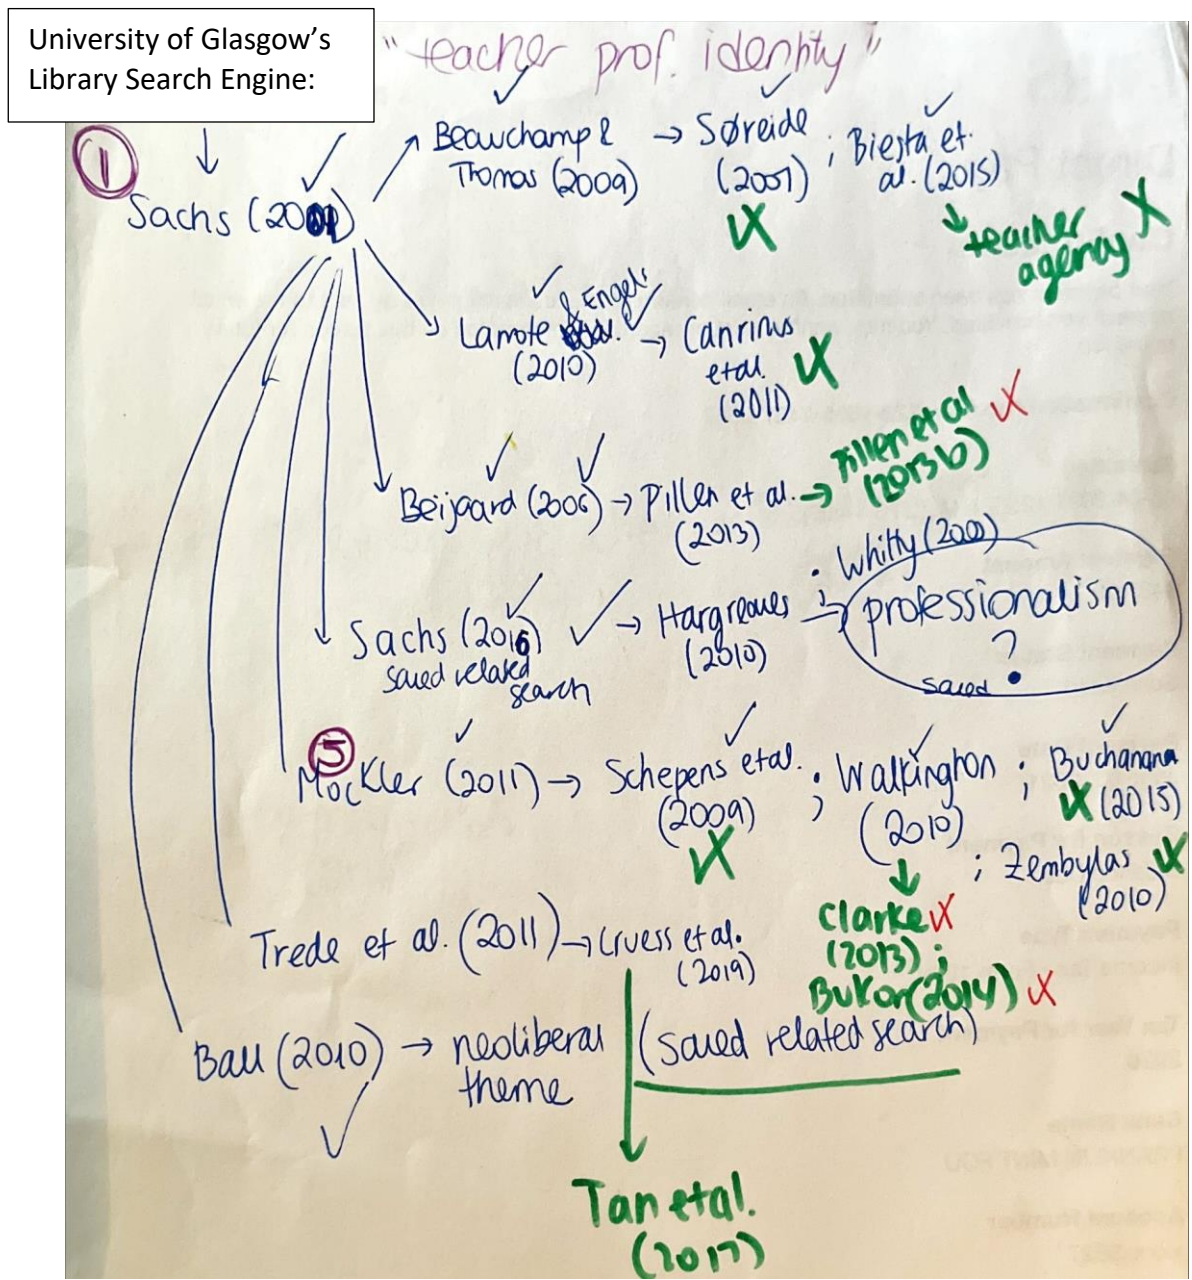 University of Glasgow's
Library Search Engine:
"teacher prof. identity"
1
Sachs (2001)
Beauchamp &
Thomas (2009)
→ Søreide
(2007)
; Biesta et.
al. (2015)
teacher
agency X
Lamote & Engels
(2010)
→ Canrinus
et al.
(2011)
Beijaard (2006) → Pillen et al. →
(2013)
Pillen et al
(2013b)
Sachs (2016)
saved related
search
→ Hargreaves
(2010)
; Whitty (2000)
professionalism
?
saved
5
Mockler (2011) → Schepens et al.
(2009)
; Walkington
(2010)
; Buchanana
(2015)
; Zembylas
(2010)
Clarke
(2013) ;
Bukor (2014)
Trede et al. (2011) → Cruess et al.
(2019)
Ball (2010) → neoliberal
theme
(saved related search)
Tan et al.
(2017)